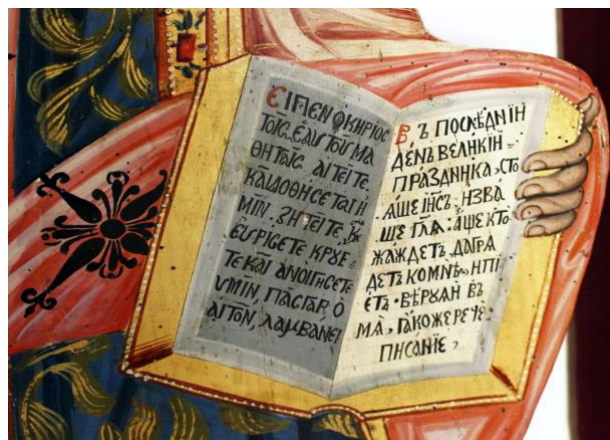 ΕΙΠΕΝ Ο ΚΗΡΙΟС
ΤΟΙС ΕΑΥΤΟΥ ΜΑ
ΘΗΤΑΙС ΑΙΤΕΙΤΕ
ΚΑΙ ΔΟΘΗСΕΤΑΙ Η
ΜΙΝ ΖΗΤΕΙΤΕ,
ΕΥΡΙСΕΤΕ ΚΡΥΕ
ΤΕ ΚΑΙ ΑΝΟΙΓΗСΕΤΕ
ΥΜΙΝ, ΠΑС ΓΑΡ, Ο
ΑΙΤΟΝ, ΛΑΜΒΑΝΕΙ
ВЪ ПОСЛѢДНІИ
ДЕНЬ ВЕЛИКІИ
ПРАЗДНИКА, СТО
ѦШЕ ІИСЪ, ИЗВА
ШЕ ГЛѦ: АЩЕ КТО
ЖАЖДЕТЪ ДАГРѦ
ДЕТЪ КОМНѢ, ИПІ
ЕТЪ. ВѢРУАИ ВЪ
МѦ, ꙖКОЖЕ РЕЧЕ
ПИСАНІЕ,